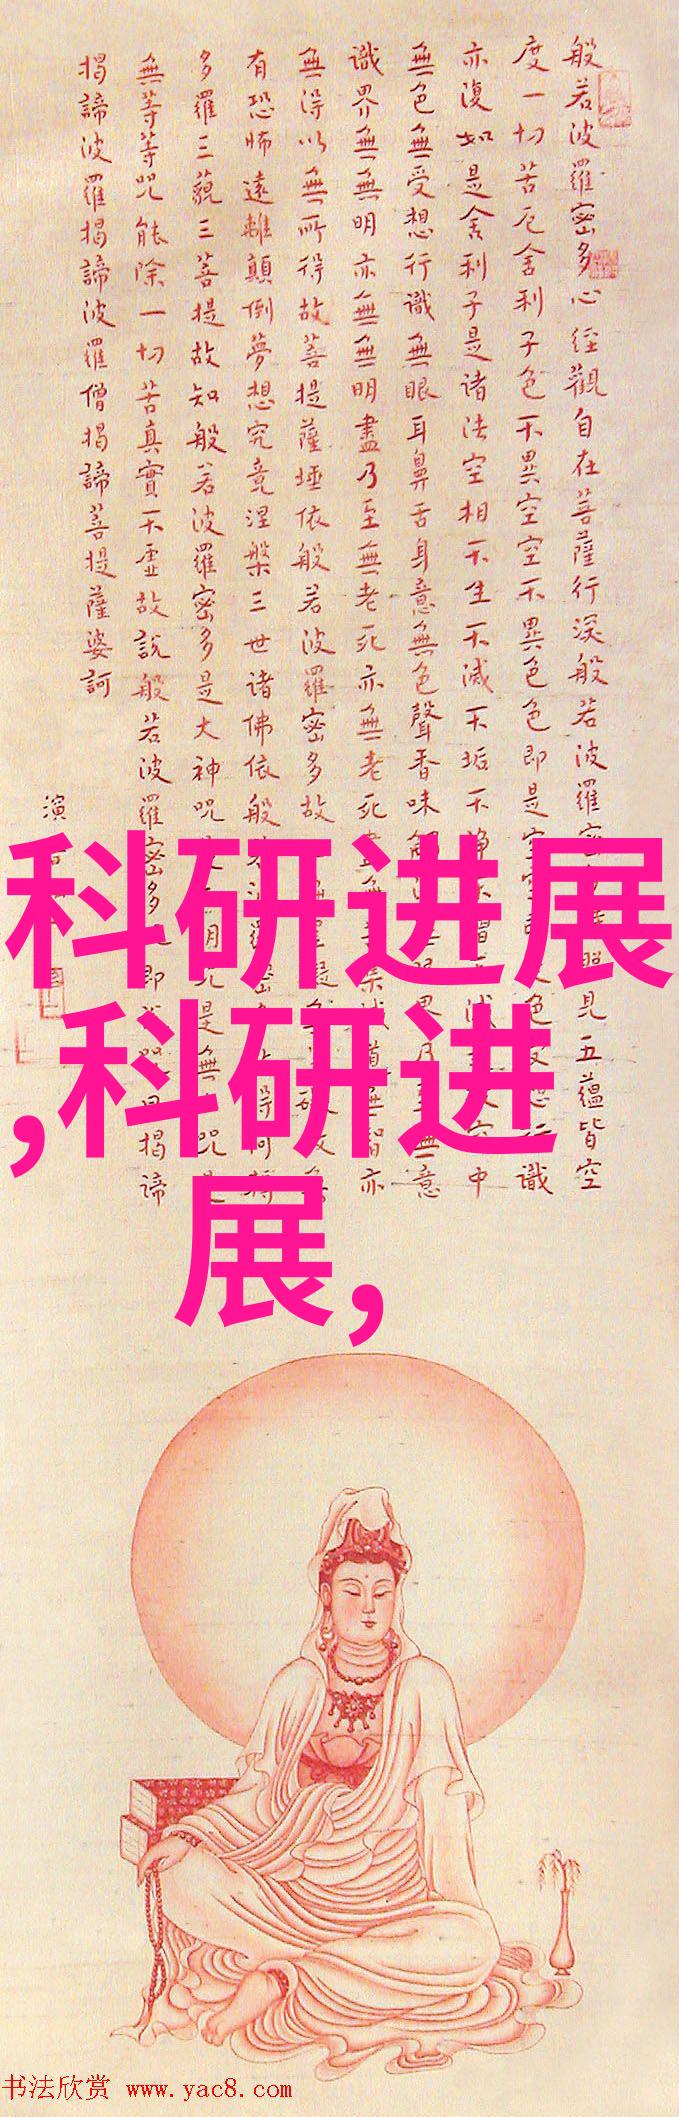 般若波羅密多心经觀自在菩薩行深般若波羅密照見五蘊皆空
度一切苦厄舍利子色不異空空不異色色即是空空色受想行識
亦復如是舍利子是诸法空相不生不滅不垢不净中
無色無受想行識無眼耳鼻舌身意無色聲香味界乃無意
識界無無明亦無無明盡乃至無老死亦無老死盡無集滅道無智亦
無得以無所得故菩提薩埵依般若波羅密多故
有恐怖遠離顛倒夢想究竟涅槃三世诸佛依般得阿耨
多羅三藐三菩提故知般若波羅密多是大神咒明是無咒是
無等等咒能除一切苦真實不虚故説般若波羅密多即曰揭諦
揭諦波羅揭諦波羅僧揭諦菩提薩婆訶
演
科研进展
,科研进
展,
书法欣赏 www.yac8.com